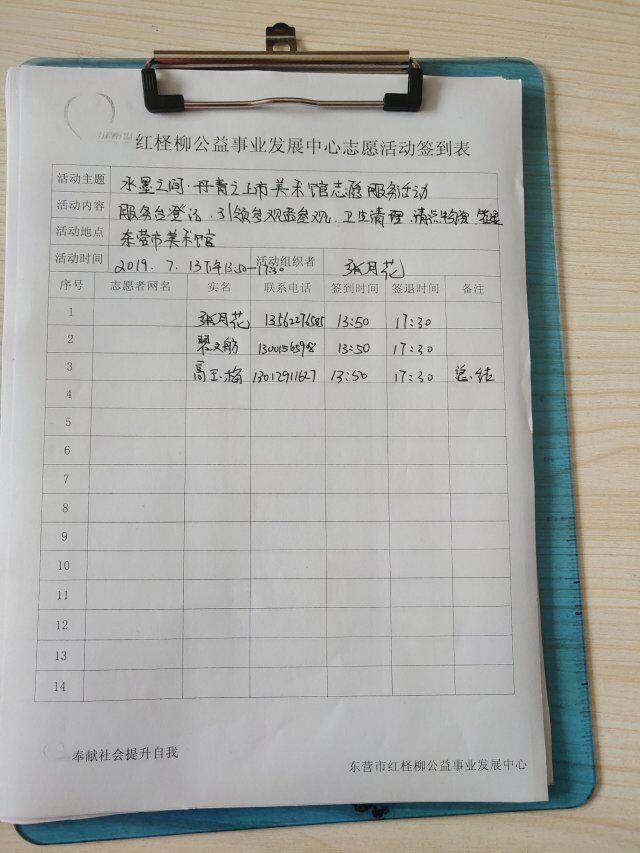 红柽柳公益事业发展中心志愿活动签到表
活动主题 水墨之间·丹青之上市美术馆志愿服务活动
活动内容 服务台登记、引领参观者参观、卫生清理、清点物资
活动地点 东营市美术馆
活动时间 2019.7.13下午13:50—17:30 活动组织者 张月花
序号 志愿者网名 实名 联系电话 签到时间 签退时间 备注
1 张月花 13562276585 13:50 17:30
2 文舫 1300156598 13:50 17:30
3 高玉梅 13012911627 13:50 17:30 总结
4
5
6
7
8
9
10
11
12
13
14
奉献社会提升自我
东营市红柽柳公益事业发展中心